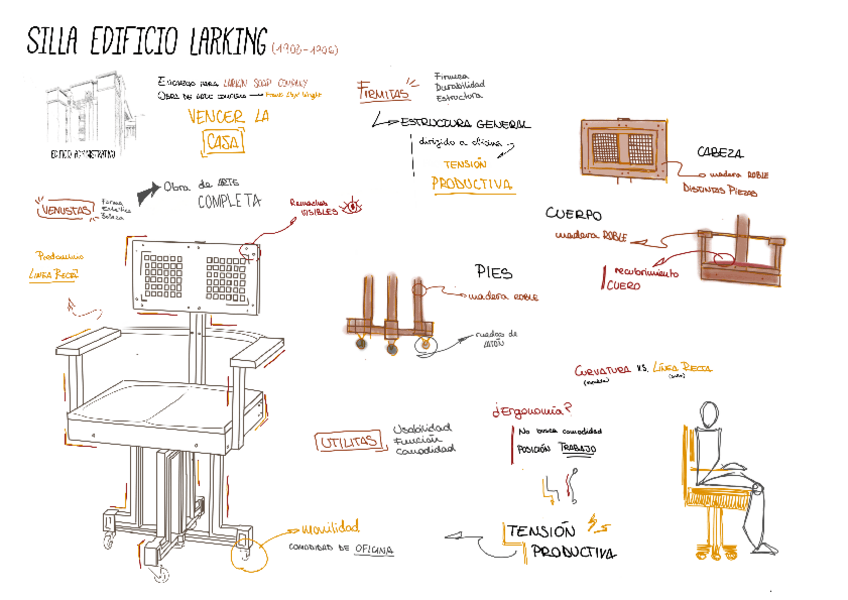 SILLA EDIFICIO LARKING (1903-1906)
ENCARGO PARA LARKIN SOAP COMPANY
OBRA DE ARTE COMPLETA → Frank Lloyd Wright
VENCER LA
CAJA
EDIFICIO ADMINISTRATIVO
FIRMITAS
Firmeza
Durabilidad
Estructura
ESTRUCTURA GENERAL
dirigido a oficina
TENSIÓN
PRODUCTIVA
CABEZA
madera ROBLE
DISTINTAS PIEZAS
VENUSTAS
Forma
Estética
Belleza
Obra de ARTE
COMPLETA
Remaches
VISIBLES
CUERPO
madera ROBLE
recubrimiento
CUERO
Predominio
LINEA RECTA
PIES
madera ROBLE
ruedas de
LATÓN
CURVATURA V.S. LÍNEA RECTA
(silla)
UTILITAS
Usabilidad
Función
Comodidad
¿Ergonomía?
No busca comodidad
POSICIÓN TRABAJO
movilidad
COMODIDAD DE OFICINA
TENSIÓN
PRODUCTIVA